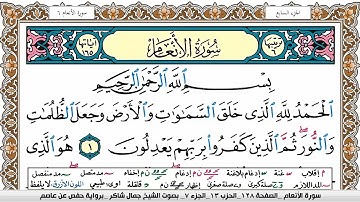 الجزء السابع
سورة الأنعام ٦
سُورَةُ الأَنْعَامِ
بِسْمِ اللَّهِ الرَّحْمَٰنِ الرَّحِيمِ
الْحَمْدُ لِلَّهِ الَّذِي خَلَقَ السَّمَٰوَٰتِ وَالْأَرْضَ وَجَعَلَ الظُّلُمَٰتِ
وَالنُّورَ ثُمَّ الَّذِينَ كَفَرُوا بِرَبِّهِمْ يَعْدِلُونَ ١ هُوَ الَّذِي
سورة الأنعام _ الصفحة ١٢٨_ الحزب ١٣_ الجزء ٧_ بصوت الشيخ جمال شاكر_ برواية حفص عن عاصم